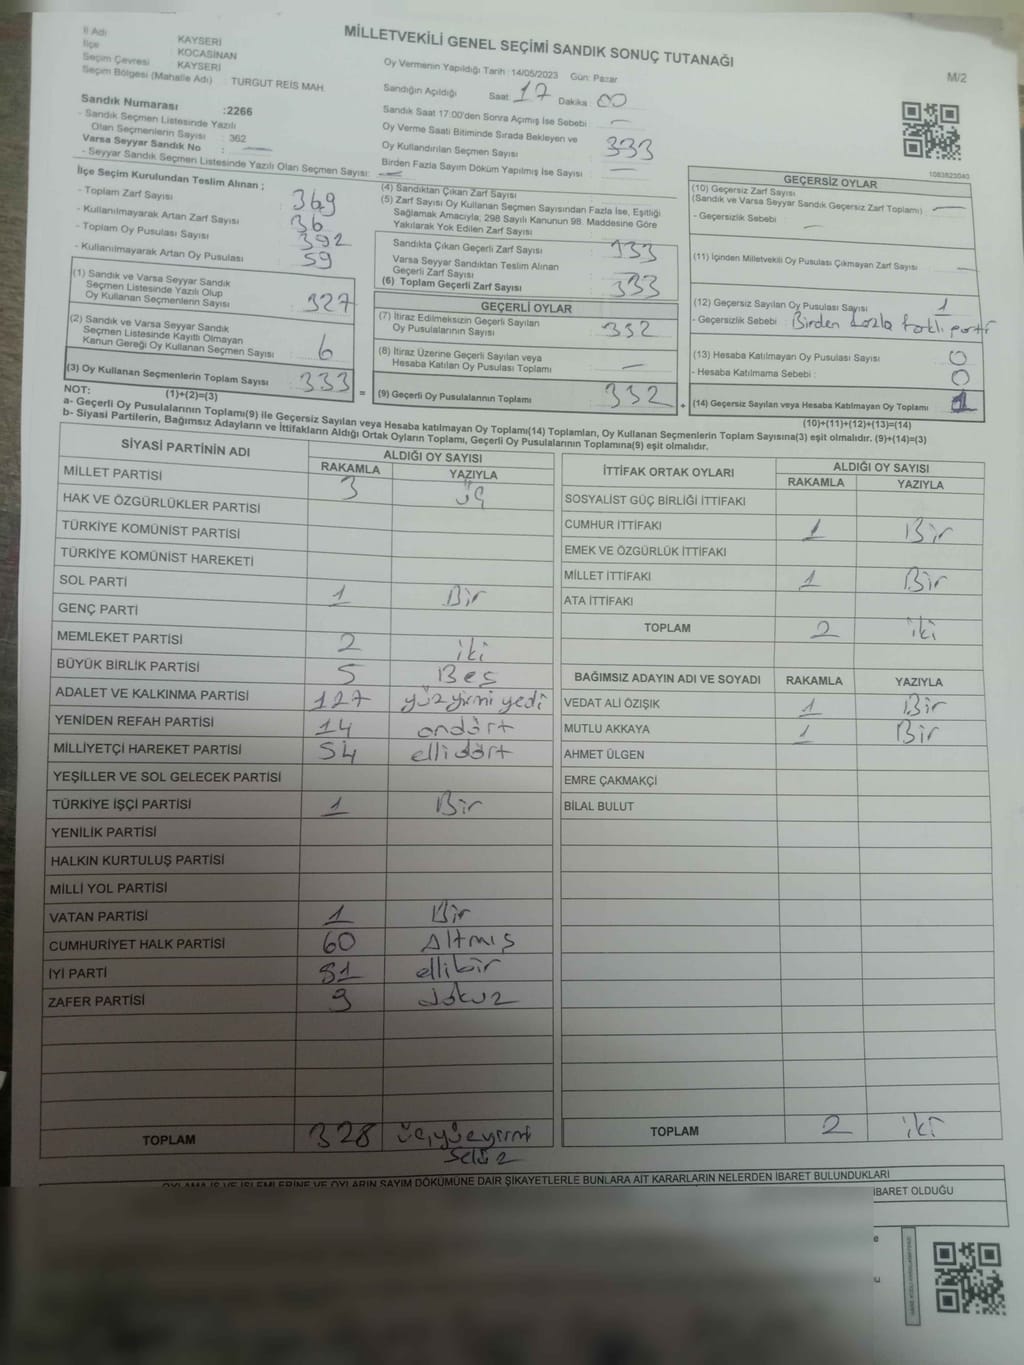 MİLLETVEKİLİ GENEL SEÇİMİ SANDIK SONUÇ TUTANAĞI
M/2
İl Adı KAYSERİ
İlçe : KOCASİNAN
Seçim Çevresi KAYSERİ
Seçim Bölgesi (Mahalle Adı) : TURGUT REİS MAH.
Sandık Numarası :2266
- Sandık Seçmen Listesinde Yazılı
Olan Seçmenlerin Sayısı : 362
Varsa Seyyar Sandık No :
- Seyyar Sandık Seçmen Listesinde Yazılı Olan Seçmen Sayısı:
Oy Vermenin Yapıldığı Tarih : 14/05/2023 Gün: Pazar
Sandığın Açıldığı Saat: 17 Dakika: 00
Sandık Saat 17:00'den Sonra Açımış İse Sebebi : —
Oy Verme Saati Bitiminde Sırada Bekleyen ve
Oy Kullandırılan Seçmen Sayısı : 333
Birden Fazla Sayım Döküm Yapılmış İse Sayısı : —
1083823040
İlçe Seçim Kurulundan Teslim Alınan ;
- Toplam Zarf Sayısı : 369
- Kullanılmayarak Artan Zarf Sayısı : 36
- Toplam Oy Pusulası Sayısı : 392
- Kullanılmayarak Artan Oy Pusulası : 59
(1) Sandık ve Varsa Seyyar Sandık
Seçmen Listesinde Yazılı Olup
Oy Kullanan Seçmenlerin Sayısı : 327
(2) Sandık ve Varsa Seyyar Sandık
Seçmen Listesinde Kayıtlı Olmayan
Kanun Gereği Oy Kullanan Seçmen Sayısı : 6
(3) Oy Kullanan Seçmenlerin Toplam Sayısı : 333 =
(1)+(2)=(3)
(4) Sandıktan Çıkan Zarf Sayısı :
(5) Zarf Sayısı Oy Kullanan Seçmen Sayısından Fazla İse, Eşitliği
Sağlamak Amacıyla; 298 Sayılı Kanunun 98. Maddesine Göre
Yakılarak Yok Edilen Zarf Sayısı :
Sandıkta Çıkan Geçerli Zarf Sayısı : 333
Varsa Seyyar Sandıktan Teslim Alınan
Geçerli Zarf Sayısı :
(6) Toplam Geçerli Zarf Sayısı : 333
GEÇERLİ OYLAR
(7) İtiraz Edilmeksizin Geçerli Sayılan
Oy Pusulalarının Sayısı : 332
(8) İtiraz Üzerine Geçerli Sayılan veya
Hesaba Katılan Oy Pusulası Toplamı : —
(9) Geçerli Oy Pusulalarının Toplamı : 332 +
GEÇERSİZ OYLAR
(10) Geçersiz Zarf Sayısı
(Sandık ve Varsa Seyyar Sandık Geçersiz Zarf Toplamı) : —
- Geçersizlik Sebebi : —
(11) İçinden Milletvekili Oy Pusulası Çıkmayan Zarf Sayısı : —
(12) Geçersiz Sayılan Oy Pusulası Sayısı : 1
- Geçersizlik Sebebi : Birden fazla farklı parti
(13) Hesaba Katılmayan Oy Pusulası Sayısı : 0
- Hesaba Katılmama Sebebi : 0
(14) Geçersiz Sayılan veya Hesaba Katılmayan Oy Toplamı : 1
(10)+(11)+(12)+(13)=(14)
NOT:
a- Geçerli Oy Pusulalarının Toplamı(9) ile Geçersiz Sayılan veya Hesaba katılmayan Oy Toplamı(14) Toplamları, Oy Kullanan Seçmenlerin Toplam Sayısına(3) eşit olmalıdır. (9)+(14)=(3)
b- Siyasi Partilerin, Bağımsız Adayların ve İttifakların Aldığı Ortak Oyların Toplamı, Geçerli Oy Pusulalarının Toplamına(9) eşit olmalıdır.
SİYASİ PARTİNİN ADI ALDIĞI OY SAYISI
RAKAMLA YAZIYLA
MİLLET PARTİSİ 3 üç
HAK VE ÖZGÜRLÜKLER PARTİSİ
TÜRKİYE KOMÜNİST PARTİSİ
TÜRKİYE KOMÜNİST HAREKETİ
SOL PARTİ 1 Bir
GENÇ PARTİ
MEMLEKET PARTİSİ 2 iki
BÜYÜK BİRLİK PARTİSİ 5 Beş
ADALET VE KALKINMA PARTİSİ 127 yüz yirmi yedi
YENİDEN REFAH PARTİSİ 14 ondört
MİLLİYETÇİ HAREKET PARTİSİ 54 elli dört
YEŞİLLER VE SOL GELECEK PARTİSİ
TÜRKİYE İŞÇİ PARTİSİ 1 Bir
YENİLİK PARTİSİ
HALKIN KURTULUŞ PARTİSİ
MİLLİ YOL PARTİSİ
VATAN PARTİSİ 1 Bir
CUMHURİYET HALK PARTİSİ 60 Altmış
İYİ PARTİ 51 ellibir
ZAFER PARTİSİ 9 dokuz
TOPLAM 328 üçyüzyirmi
sekiz
İTTİFAK ORTAK OYLARI ALDIĞI OY SAYISI
RAKAMLA YAZIYLA
SOSYALİST GÜÇ BİRLİĞİ İTTİFAKI
CUMHUR İTTİFAKI 1 Bir
EMEK VE ÖZGÜRLÜK İTTİFAKI
MİLLET İTTİFAKI 1 Bir
ATA İTTİFAKI
TOPLAM 2 iki
BAĞIMSIZ ADAYIN ADI VE SOYADI RAKAMLA YAZIYLA
VEDAT ALİ ÖZIŞIK 1 Bir
MUTLU AKKAYA 1 Bir
AHMET ÜLGEN
EMRE ÇAKMAKÇİ
BİLAL BULUT
TOPLAM 2 iki
OYLAMA İŞ VE İŞLEMLERİNE VE OYLARIN SAYIM DÖKÜMÜNE DAİR ŞİKAYETLERLE BUNLARA AİT KARARLARIN NELERDEN İBARET BULUNDUKLARI
İBARET OLDUĞU